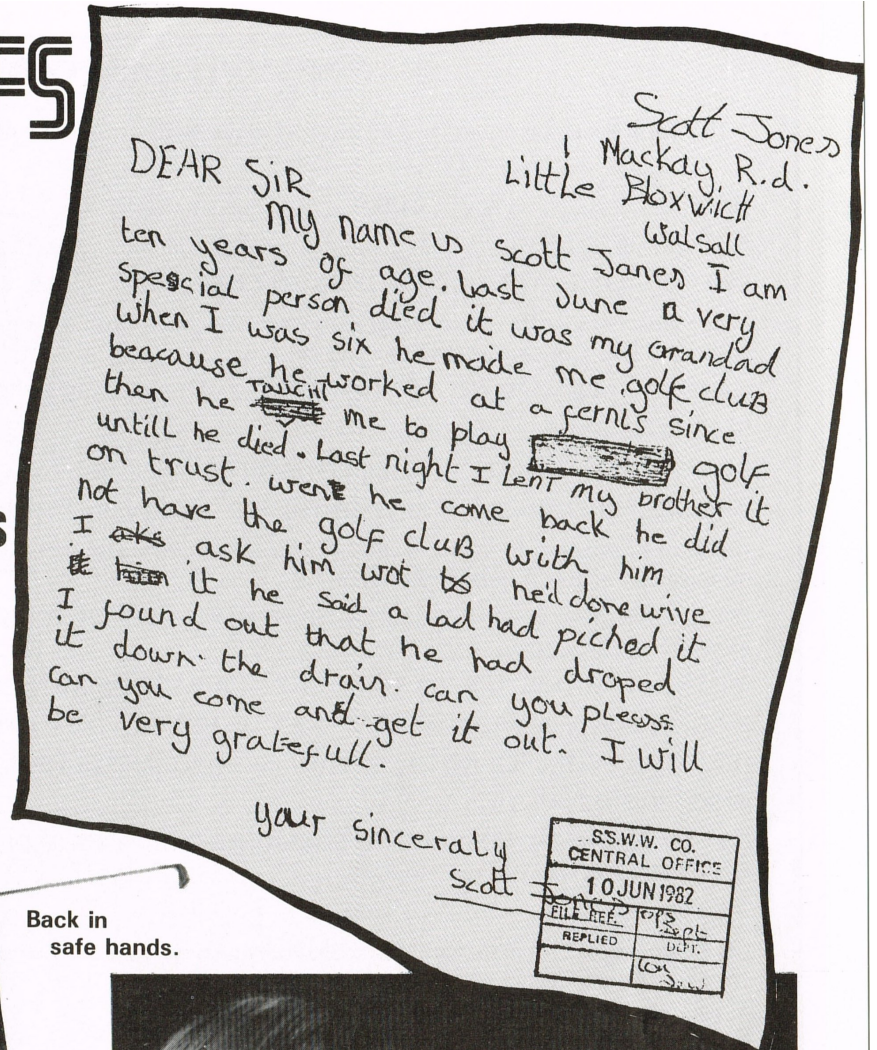 FS
Scott Jones
1 Mackay. R.d.
Little Bloxwich
Walsall
DEAR SiR
My name is Scott Jones I am
ten years of age. Last June a very
special person died it was my grandad
when I was six he made me golf club
beacause he worked at a fernis since
then he TAUCHT me to play golf
untill he died. Last night I Lent my brother it
on trust. went he come back he did
not have the golf cluB with him
I aks ask him wot to he'd done wive
it him it he said a Lad had piched it
I found out that he had droped
it down the drain. can you pleass
can you come and get it out. I will
be very gratefull.
your sinceraly
Scott Jones
S.S.W.W. CO.
CENTRAL OFFICE
10 JUN 1982
FILE REF. OPS Dept
REPLIED DEPT.
S
Back in
safe hands.